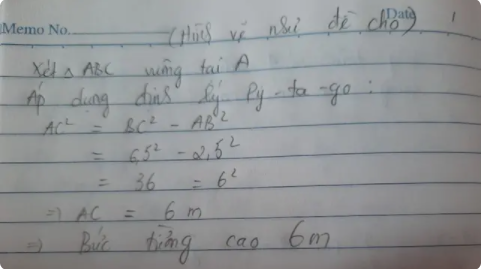 Memo No. Date 1
(Hình vẽ như đề cho)
Xét △ ABC vuông tại A
Áp dụng định lý Py-ta-go :
AC² = BC² - AB²
= 6,5² - 2,5²
= 36 = 6²
=> AC = 6 m
=> Bức tường cao 6m